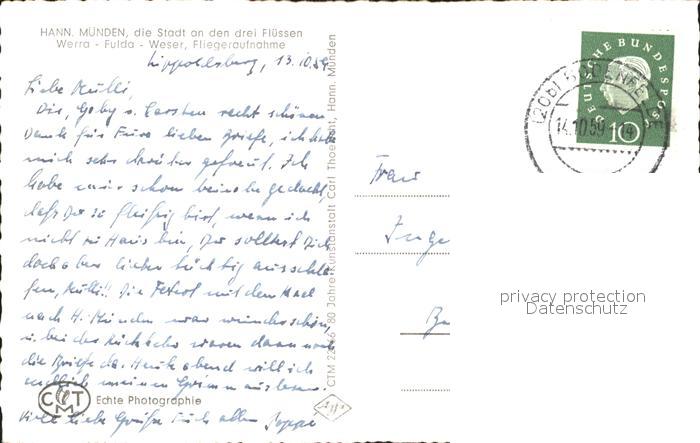 HANN. MÜNDEN, die Stadt an den drei Flüssen
Werra - Fulda - Weser, Fliegeraufnahme
Lippoldsberg, 13.10.59
Liebe Mülli,
Dir, Gaby u. Carsten recht schönen
Dank für Eure lieben Briefe, ich habe
mich sehr darüber gefreut. Ich
habe mir schon beinahe gedacht,
daß Du so fleißig bist, wenn ich
nicht zu Haus bin, Du solltest Dich
doch aber lieber tüchtig ausschla-
fen, Mülli! Die Fahrt mit dem
nach H. Münden war wunderschön,
u. bei der Rückkehr waren dann noch
die Briefe da. Heute abend will ich
endlich meinen Grimm auslesen.
Viele liebe Grüße Euch allen
CTM
Echte Photographie
CTM 80 Jahre Kunstanstalt Carl Thoericht, Hann. Münden
DEUTSCHE BUNDESPOST
10
(20b) BODENFELDE
14.10.59
Frau
Inge
privacy protection
Datenschutz